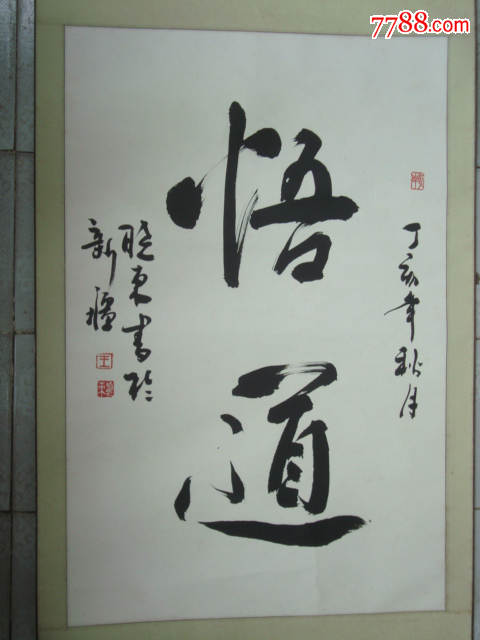 7788.com
丁亥年秋月
悟道
晓东书於
新疆